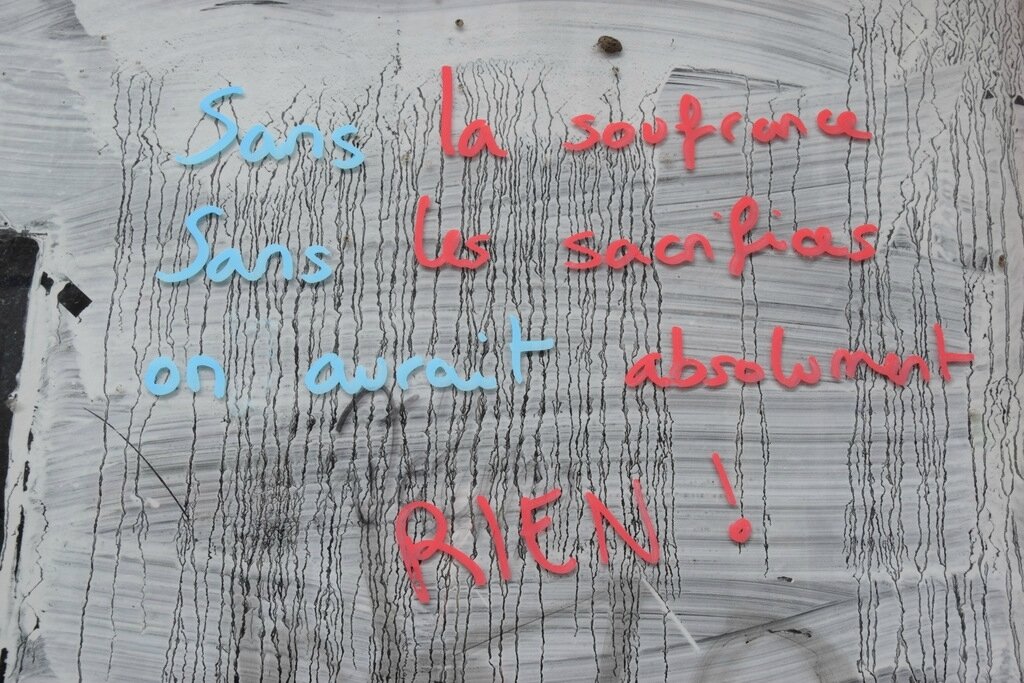 Sans la soufrance
Sans les sacrifices
on aurait absolument
RIEN !